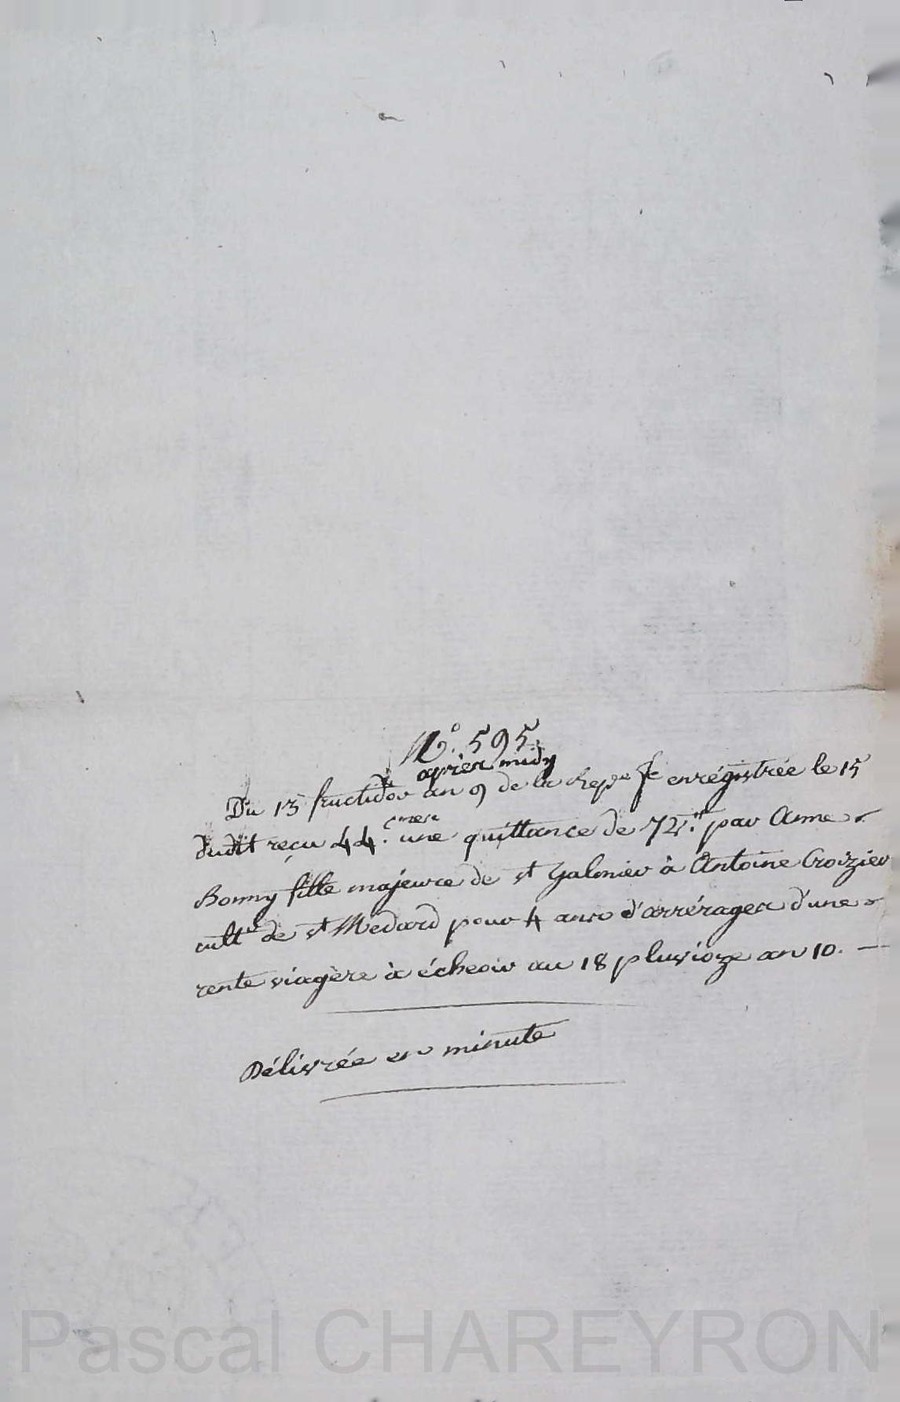 N.° 595.
après midy
Du 15 fructidor an 9 de la Rep.ue fse enrégistrée le 15
dudit reçu 44 cmes une quittance de 72.tt par Anne
Bonny fille majeure de st Galmier à Antoine Croizier
cult.r de st Medard pour 4 ans d'arrérages d'une
rente viagère à écheoir au 18 pluvioze an 10. —
Délivrée en minute
Pascal CHAREYRON